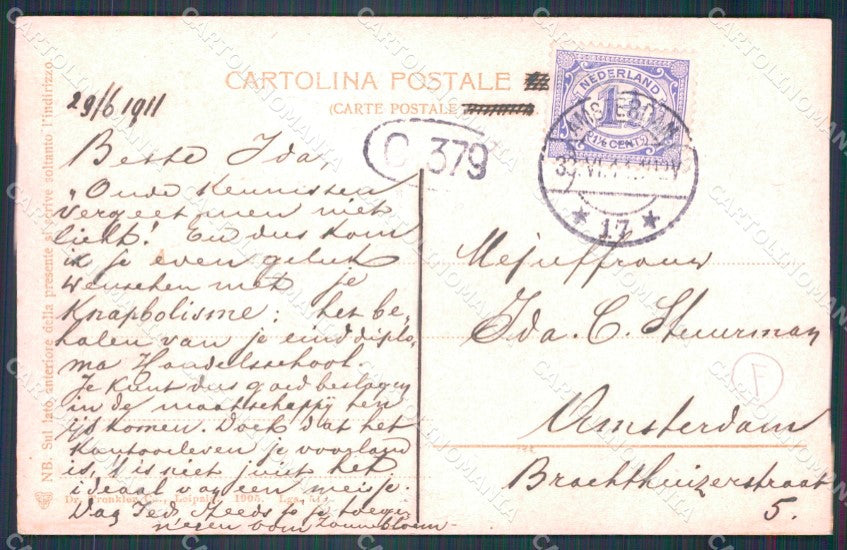 CARTOLINA POSTALE
(CARTE POSTALE
NEDERLAND
1½
1½ CENT
AMSTERDAM
* 17 *
C 379
NB. Sul lato anteriore della presente si scrive soltanto l'indirizzo.
29/6 1911
Beste Ida,
"Oude kennissen
vergeet men niet
licht! En dus kom
ik je even geluk
wenschen met je
Knapbolisme; het be-
halen van je einddiplo-
ma Handelsschool.
Je kunt dus goed beslagen
in de maatschappij ten
ijs komen. Doch dat het
kantoorleven je voorland
is, 't is niet juist het
ideaal van een meisje.
Dag Ied. Steeds je toege-
negen oom
Dr. Trenkler Co., Leipzig. 1905.
Mejuffrouw
Ida. C. Stuurman
Amsterdam
Brachthuizerstraat
5.
7
CARTOLINOMANIA